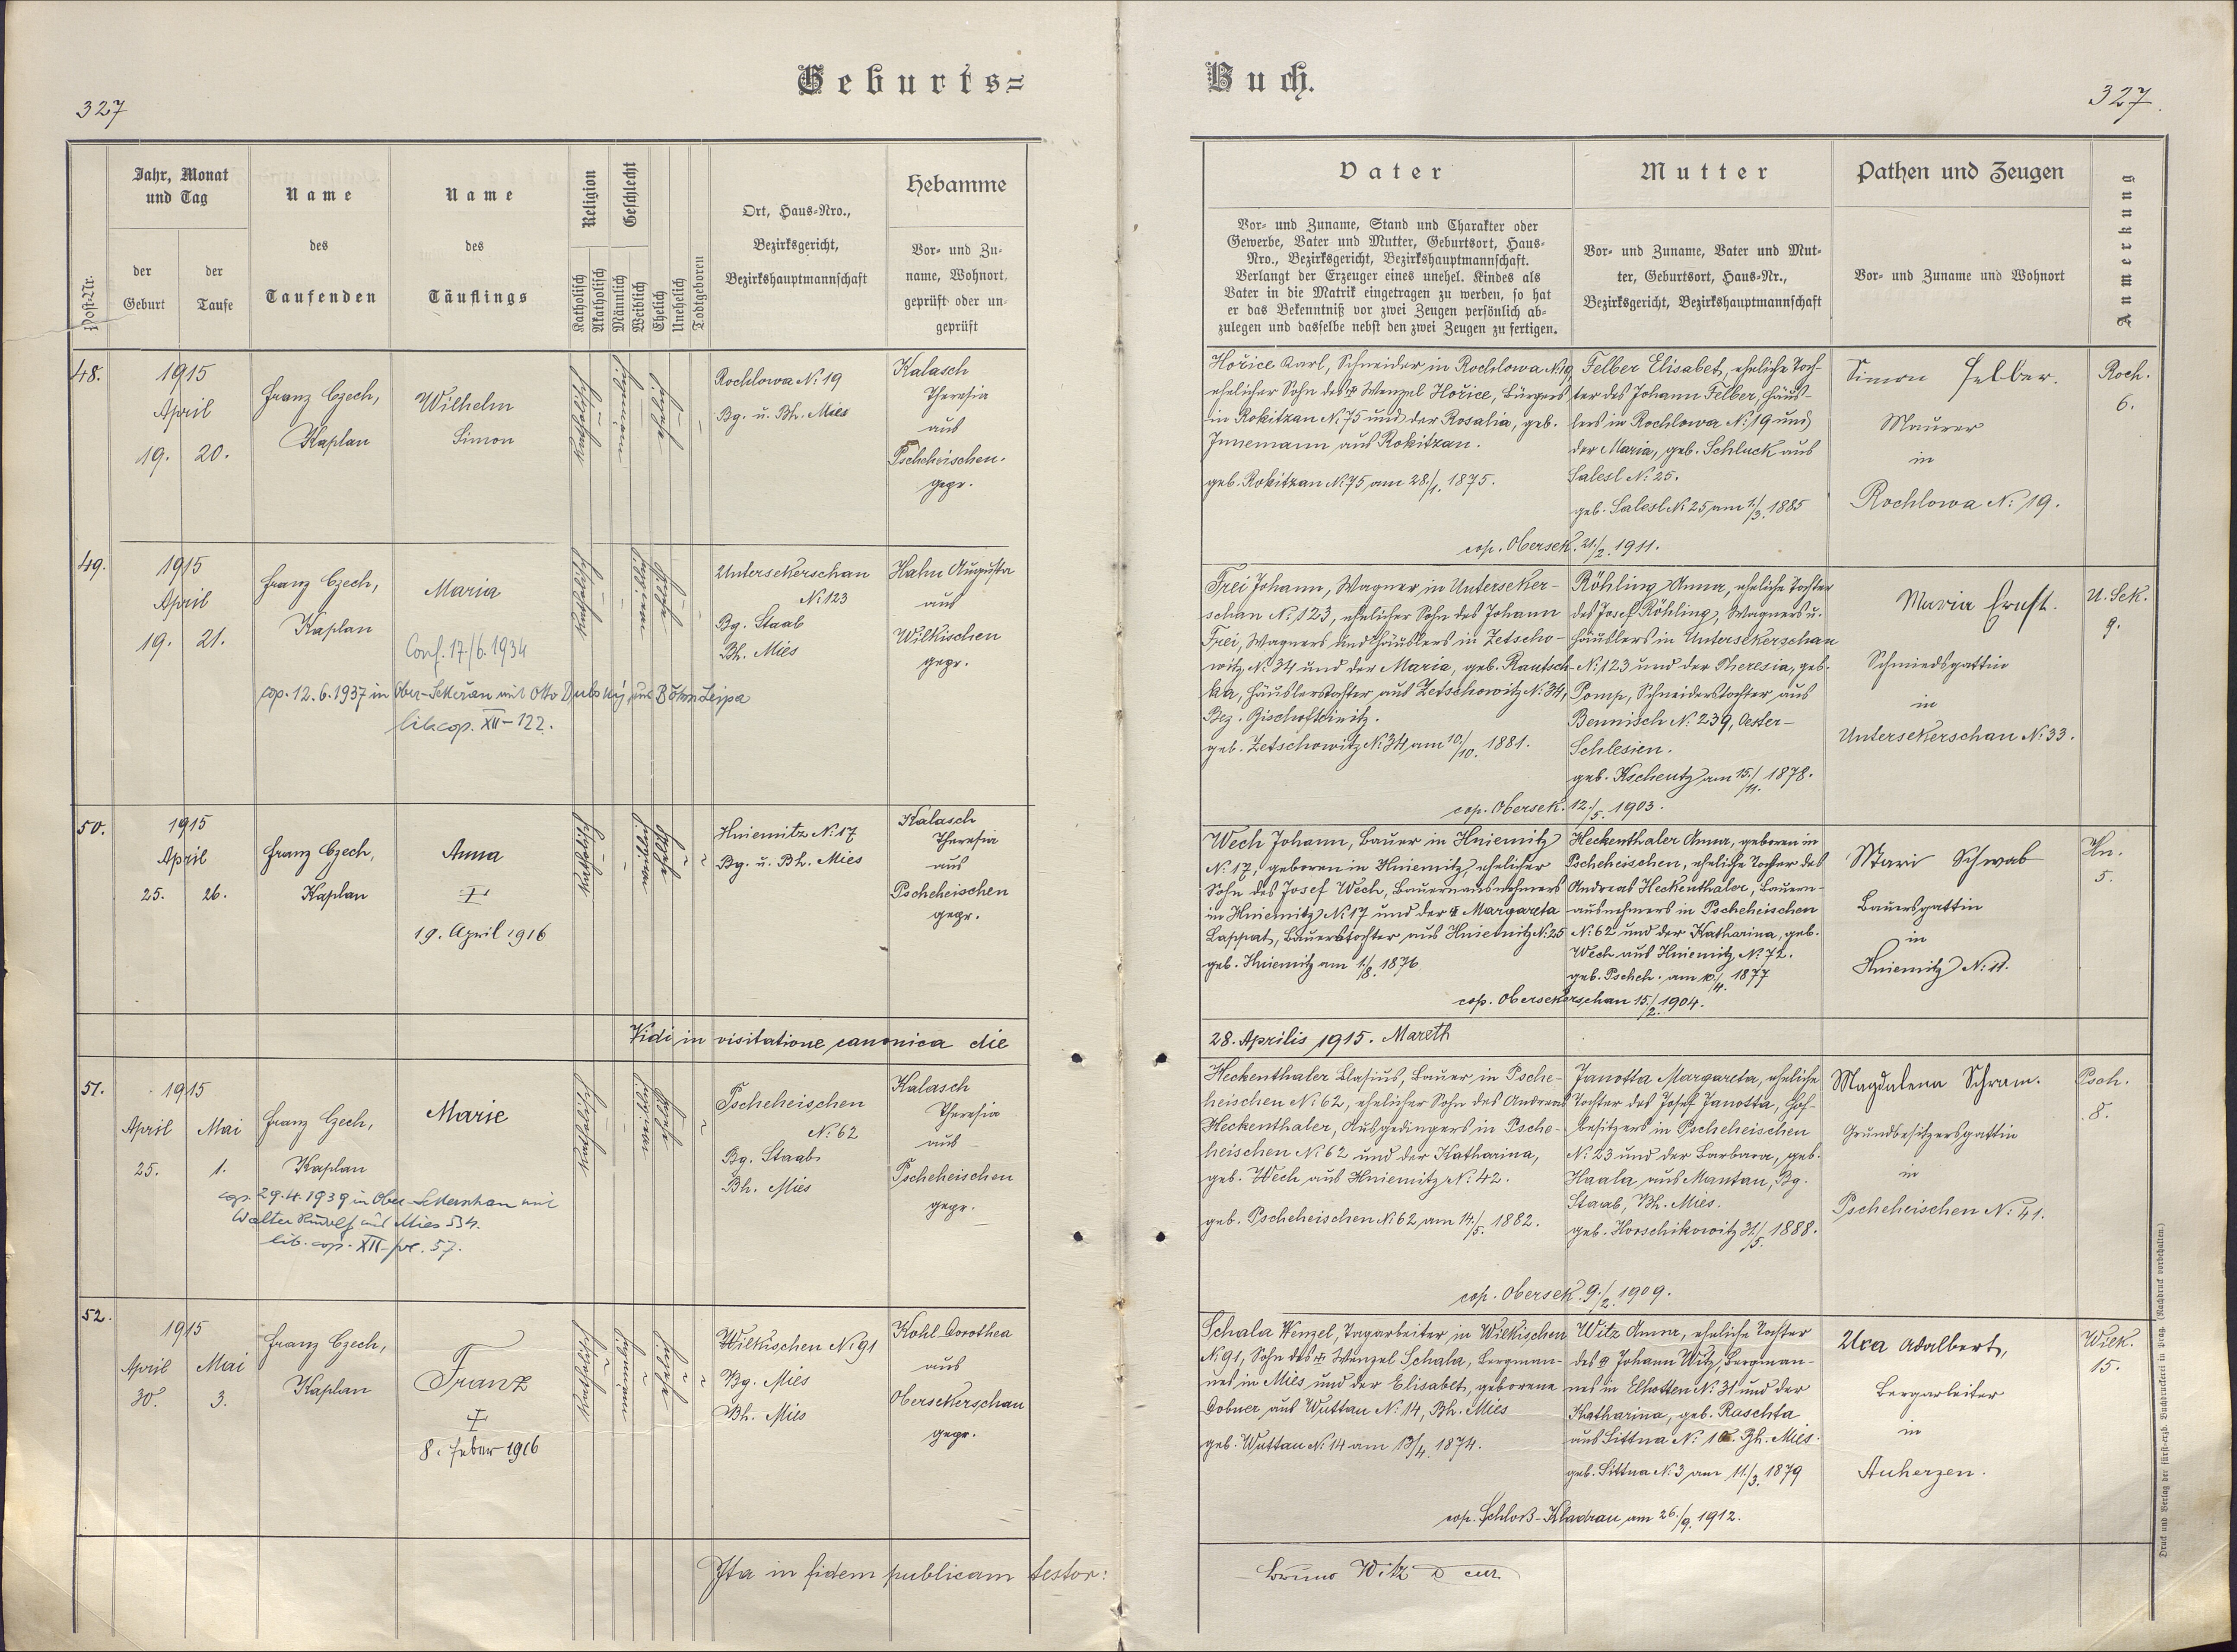 Geburts=
Buch.
327
327.
Post-Nr.
Jahr, Monat
und Tag
der
Geburt
der
Taufe
Name
des
Taufenden
Name
des
Täuflings
Religion
Katholisch
Akatholisch
Geschlecht
Männlich
Weiblich
Ehelich
Unehelich
Todtgeboren
Ort, Haus-Nro.,
Bezirksgericht,
Bezirkshauptmannschaft
Hebamme
Vor- und Zu-
name, Wohnort,
geprüft oder un-
geprüft
Vater
Vor- und Zuname, Stand und Charakter oder
Gewerbe, Vater und Mutter, Geburtsort, Haus-
Nro., Bezirksgericht, Bezirkshauptmannschaft.
Verlangt der Erzeuger eines unehel. Kindes als
Vater in die Matrik eingetragen zu werden, so hat
er das Bekenntniß vor zwei Zeugen persönlich ab-
zulegen und dasselbe nebst den zwei Zeugen zu fertigen.
Mutter
Vor- und Zuname, Vater und Mut-
ter, Geburtsort, Haus-Nr.,
Bezirksgericht, Bezirkshauptmannschaft
Pathen und Zeugen
Vor- und Zuname und Wohnort
Anmerkung
48.
1915
April
19. 20.
Franz Czech,
Kaplan
Wilhelm
Simon
katholisch
männl.
ehelich
Rochlowa N: 19
Bg. u. Bh. Mies
Kalasch
Theresia
aus
Pscheheischen.
gepr.
Hořice Karl, Schneider in Rochlowa N:19,
ehelicher Sohn des Wenzel Hořice, Bürgers
in Rokitzan N: 75 und der Rosalia, geb.
Innemann aus Rokitzan.
geb. Rokitzan N:75 am 28./1. 1875.
Felber Elisabet, eheliche Toch-
ter des Johann Felber, Häus-
lers in Rochlowa N: 19 und
der Maria, geb. Schluck aus
Salesl N: 25.
geb. Salesl N: 25 am 1./3. 1885
cop. Obersek. 21./2. 1911.
Simon Felber.
Maurer
in
Rochlowa N: 19.
Roch.
6.
49.
1915
April
19. 21.
Franz Czech,
Kaplan
Maria
Conf. 17/6. 1934
cop. 12.6.1937 in Ober-Sekeřan mit Otto Dubský aus Böhm. Leipa
lib. cop. XII-122.
katholisch
ehelich
Untersekerschan
N: 123
Bg. Staab
Bh. Mies
Hahn Augusta
aus
Wilkischen
gepr.
Frei Johann, Wagner in Unterseker-
schan N: 123, ehelicher Sohn des Johann
Frei, Wagners und Häuslers in Zetscho-
witz N: 34 und der Maria, geb. Rautsch-
ka, Häuslerstochter aus Zetschowitz N: 34,
Bez. Bischofteinitz.
geb. Zetschowitz N: 34 am 10./10. 1881.
Röhling Anna, eheliche Tochter
des Josef Röhling, Wagners u.
Häuslers in Untersekerschan
N: 123 und der Theresia, geb.
Pomp, Schneiderstochter aus
Bennisch N: 239, Oester-
Schlesien.
geb. Kscheutz am 15./11. 1878.
cop. Obersek. 12./5. 1903.
Maria Ernst.
Schmiedsgattin
in
Untersekerschan N: 33.
U. Sek.
9.
50.
1915
April
25. 26.
Franz Czech,
Kaplan
Anna
19. April 1916
katholisch
ehelich
Hniemitz N: 17
Bg. u. Bh. Mies
Kalasch
Theresia
aus
Pscheheischen
gepr.
Wech Johann, Bauer in Hniemitz
N: 17, geboren in Hniemitz, ehelicher
Sohn des Josef Wech, Bauernausnehmers
in Hniemitz N: 17 und der Margareta
Lappat, Bauerstochter aus Hniemitz N: 25
geb. Hniemitz am 1./8. 1876
Heckenthaler Anna, geboren in
Pscheheischen, eheliche Tochter des
Andreas Heckenthaler, Bauern-
ausnehmers in Pscheheischen
N: 62 und der Katharina, geb.
Wech aus Hniemitz N: 72.
geb. Pscheh. am 10./4. 1877
cop. Obersekerschan 15./2. 1904.
Mari Schwab
Bauersgattin
in
Hniemitz N: 11.
Hn.
5.
Vidi in visitatione canonica die
28. Aprilis 1915. Mareth
51.
1915
April Mai
25. 1.
Franz Czech,
Kaplan
Marie
cop. 29.4.1939 in Ober-Sekerschan mit
Walter Rudolf aus Mies 534.
lib. cop. XII-fol. 57.
katholisch
ehelich
Pscheheischen
N: 62
Bg. Staab
Bh. Mies
Kalasch
Theresia
aus
Pscheheischen
gepr.
Heckenthaler Blasius, Bauer in Psche-
heischen N: 62, ehelicher Sohn des Andreas
Heckenthaler, Ausgedingers in Psche-
heischen N: 62 und der Katharina,
geb. Wech aus Hniemitz N: 42.
geb. Pscheheischen N: 62 am 14./5. 1882.
Janotta Margareta, eheliche
Tochter des Josef Janotta, Hof-
besitzers in Pscheheischen
N: 23 und der Barbara, geb.
Haala aus Mantau, Bg.
Staab, Bh. Mies.
geb. Horschikowitz 31./5. 1888.
cop. Obersek. 9./2. 1909.
Magdalena Schram.
Grundbesitzersgattin
in
Pscheheischen N: 41.
Psch.
8.
52.
1915
April Mai
30. 3.
Franz Czech,
Kaplan
Franz
8. Feber 1916
katholisch
männl.
ehelich
Wilkischen N: 91
Bg. Mies
Bh. Mies
Kohl Dorothea
aus
Obersekerschan
gepr.
Schala Wenzel, Tagarbeiter in Wilkischen
N: 91, Sohn des Wenzel Schala, Bergman-
nes in Mies und der Elisabet, geborene
Dobner aus Wuttau N: 14, Bh. Mies
geb. Wuttau N: 14 am 13/4. 1874.
Witz Anna, eheliche Tochter
des Johann Witz, Bergman-
nes in Elhotten N: 31 und der
Katharina, geb. Raschta
aus Sittna N: Bh. Mies.
geb. Sittna N: 3 am 11./3. 1879
cop. Schloß-Kladrau am 26./9. 1912.
Ura Adalbert,
Bergarbeiter
in
Auherzen.
Wilk.
15.
Ita in fidem publicam testor:
Bruno Witz D cur.
Druck und Verlag der fürst-erzb. Buchdruckerei in Prag. (Nachdruck vorbehalten.)